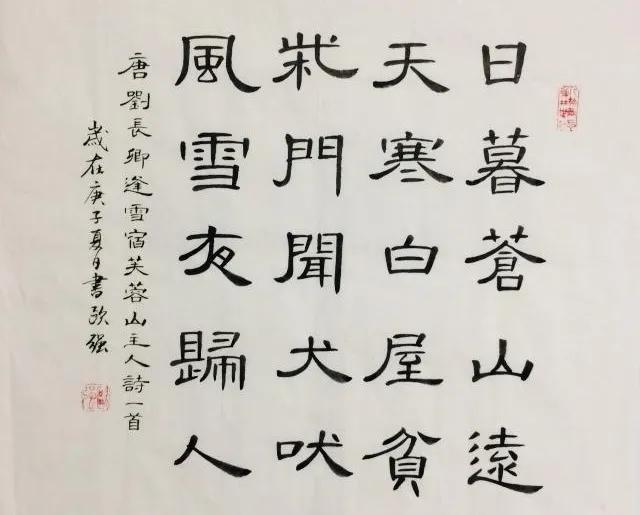 日暮蒼山遠
天寒白屋貧
柴門聞犬吠
風雪夜歸人
唐劉長卿逢雪宿芙蓉山主人詩一首
歲在庚子夏日書欧强